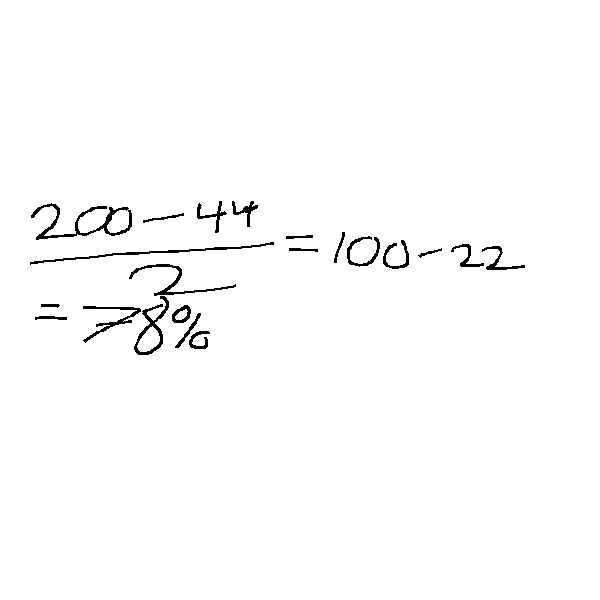 200 - 44
2
= 100 - 22
= 78%